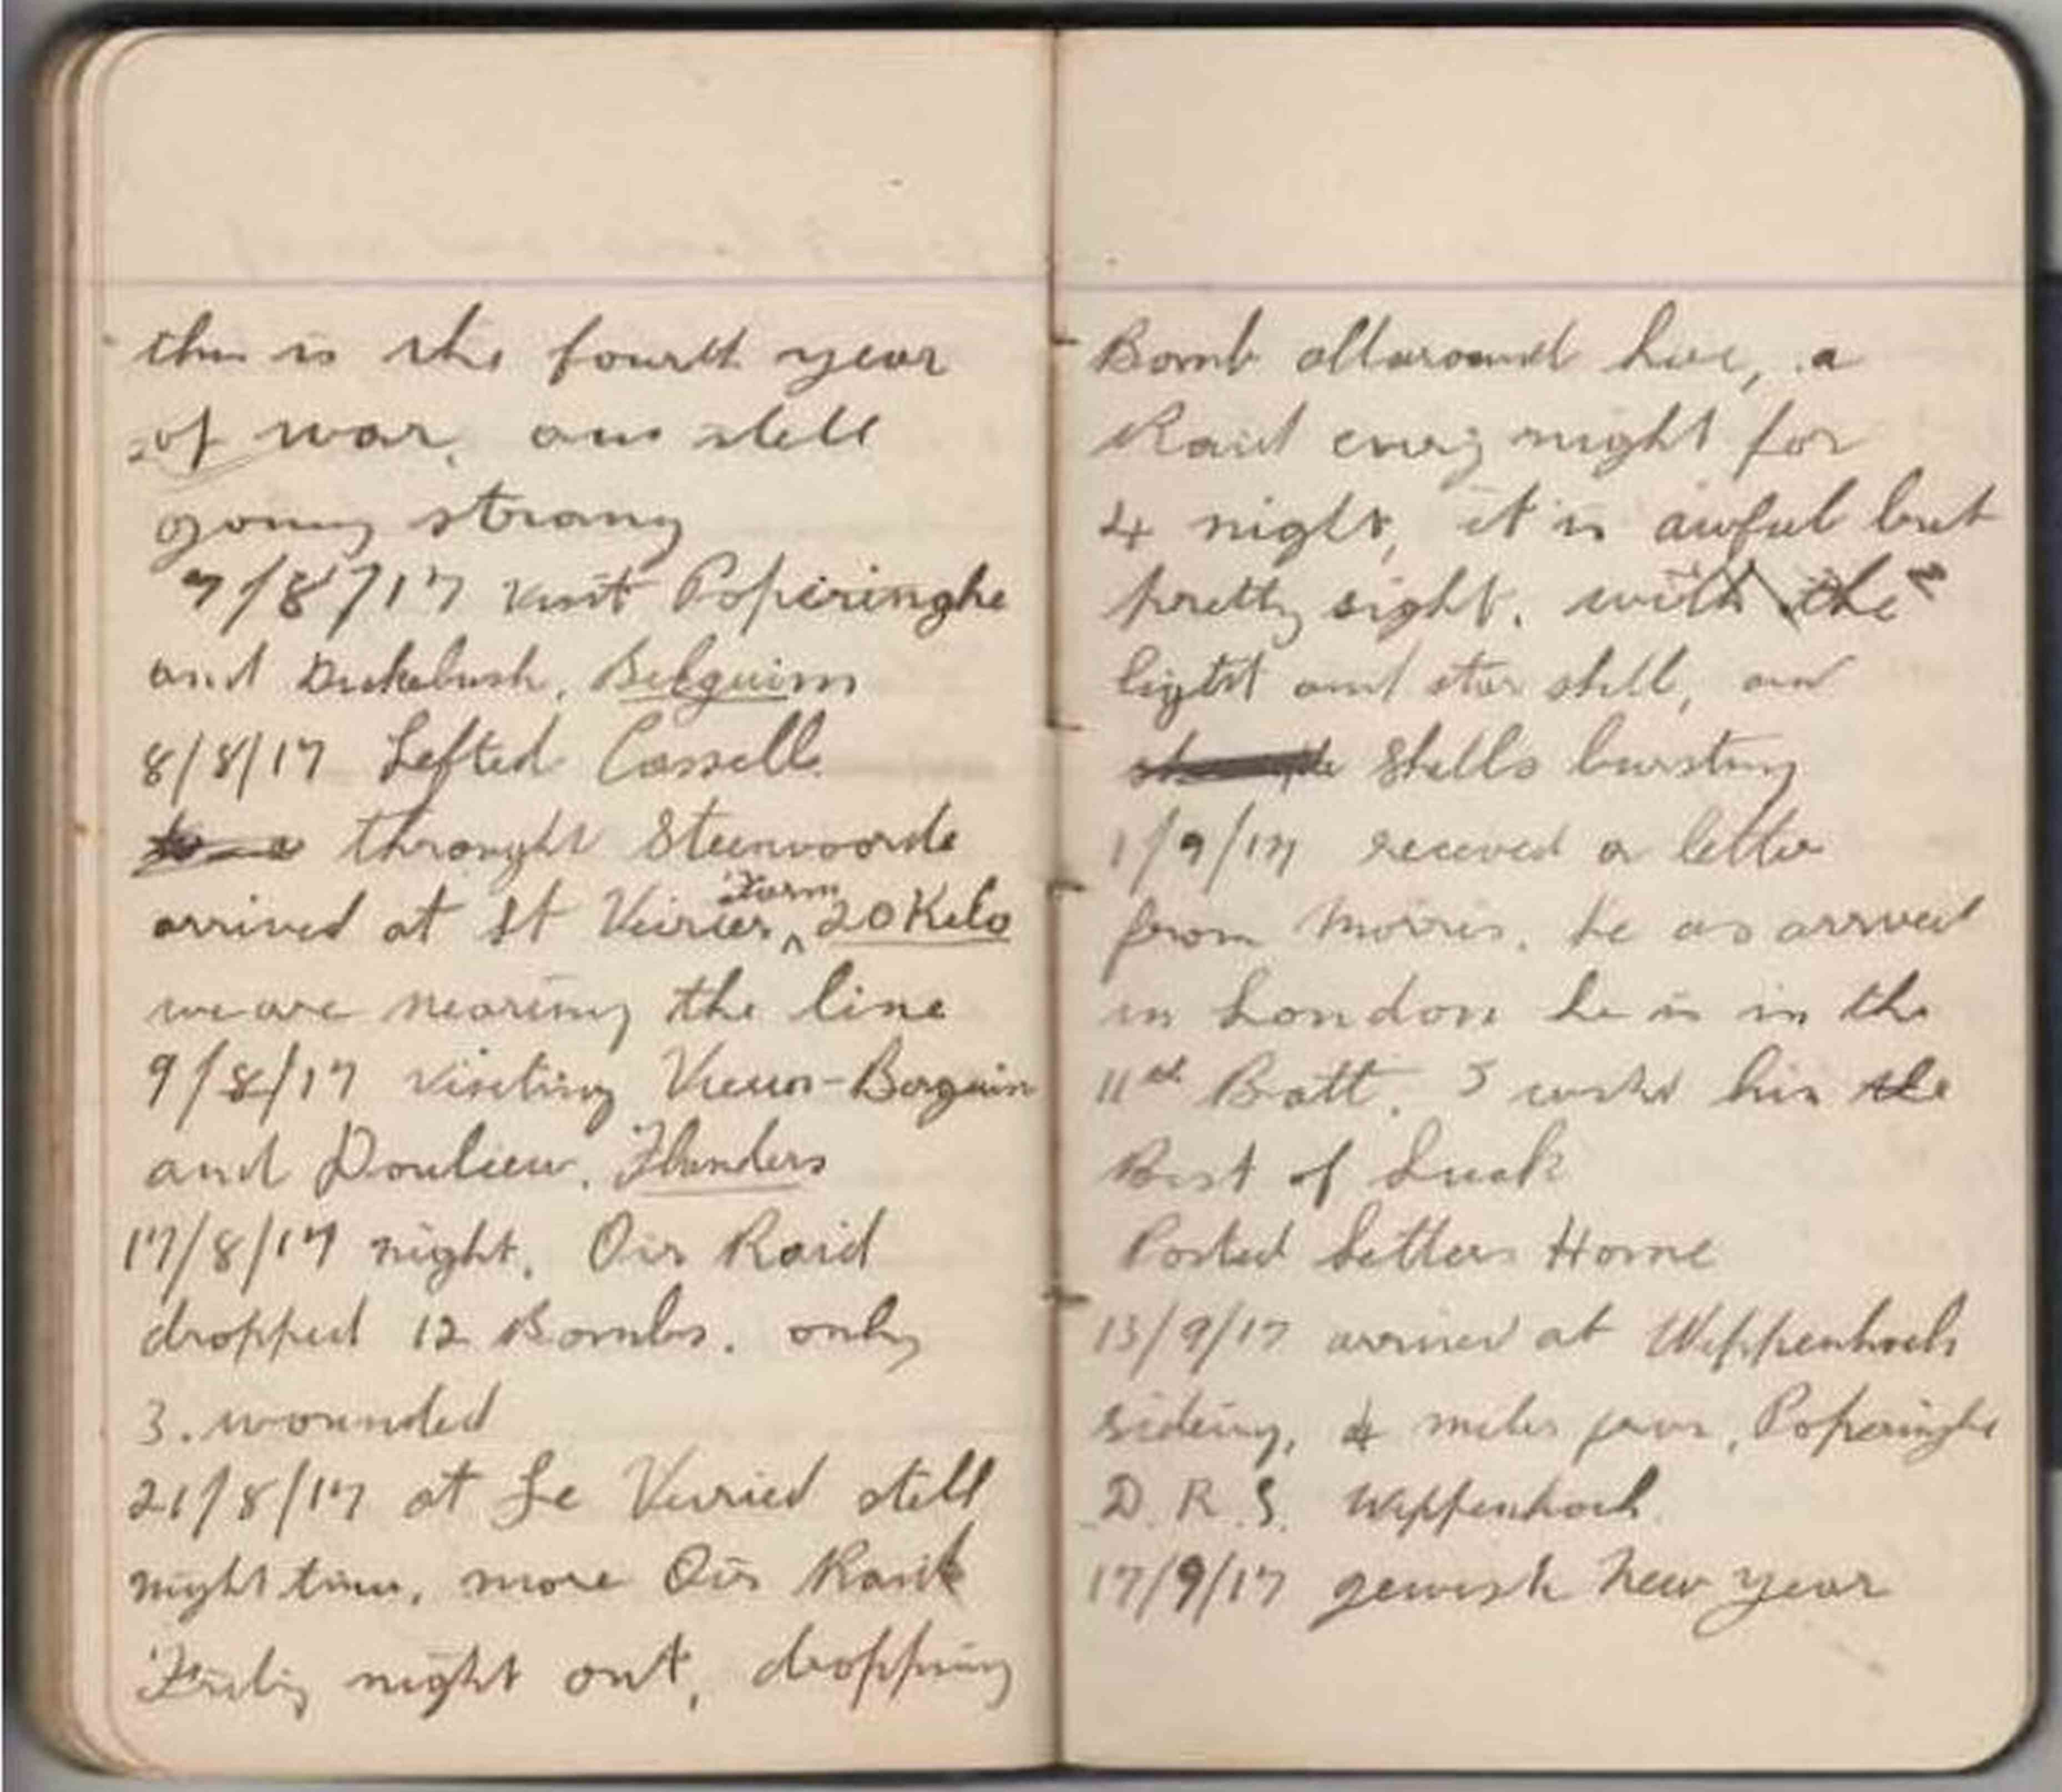 this is the fourth year
of war, and still
going strong
7/8/17 visit Poperinghe
and Dickebush, Belguim
8/8/17 Lefted Cassell
throught Steenvoorde
arrived at St Veirier, Farm 20 Kilo
we are nearing the line
9/8/17 visiting Vieux-Berquin
and Doulieu. Flanders
17/8/17 night, Air Raid
dropped 12 Bombs. only
3. wounded
21/8/17 at Le Verried still
night time, more Air Raid
night out, dropping
Bomb allaround here, a
Raid every night for
4 night, it is awful but
pretty sight. with the
light and star shell, and
shells bursting
1/9/17 received a letter
from Morris. he as arrived
in London he is in the
11th Batt. I wish him the
Best of Luck
Posted Letters Home
13/9/17 arrived at Wippenhoek
sideing, 4 miles from, Poperinghe
D.R.S. Wippenhoek
17/9/17 Jewish New year